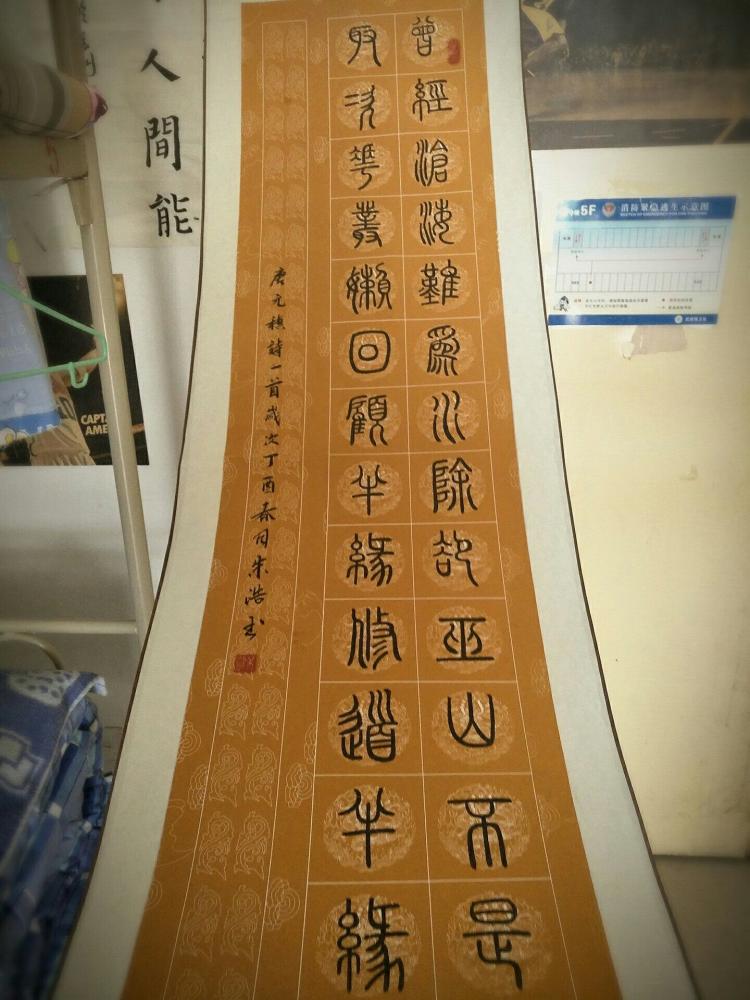 人間能
曾經滄海難為水除卻巫山不是
取次華叢嬾回顧半緣修道半緣
唐元稹詩一首歲次丁酉春月朱浩书
CAPT
AME
5F 消防紧急逃生示意图